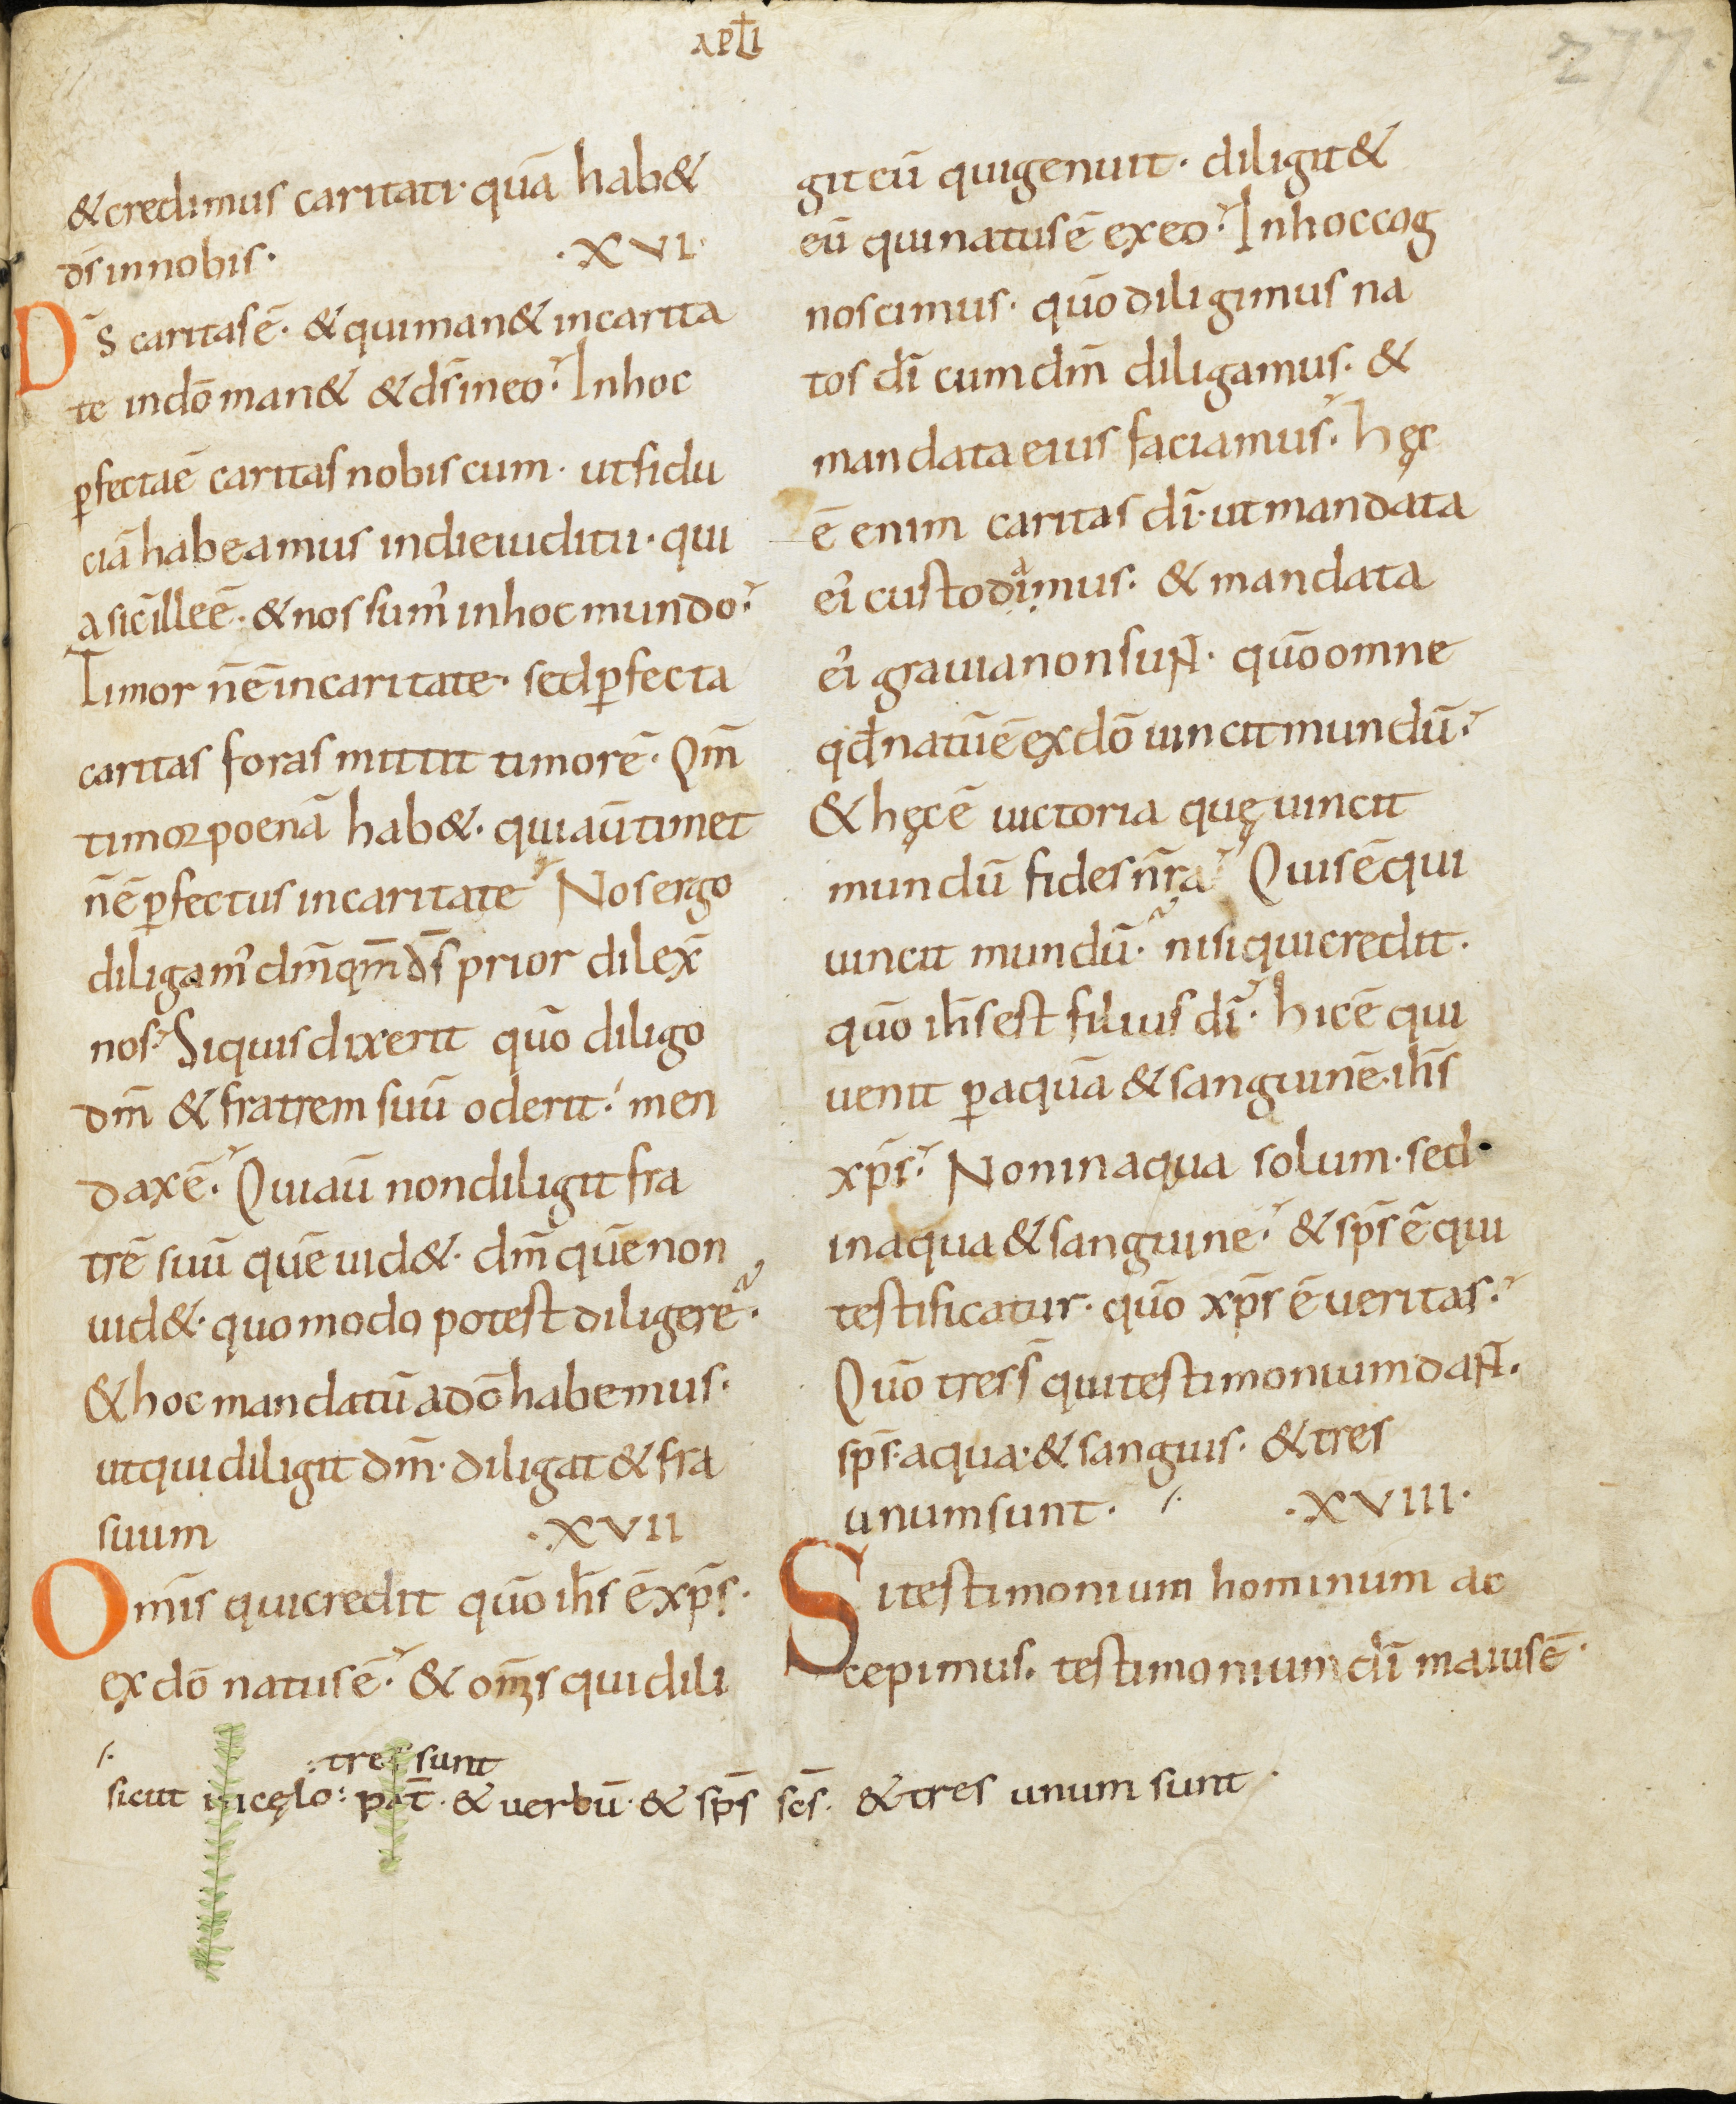 apłi
277.
& credimus caritati· quā hab&
d̄s in nobis· ·XVI·
D̄s caritas ē· & qui man& in carita
te in dō man& & d̄s in eo· In hoc
ꝑfecta ē caritas nobiscum· ut fidu
ciā habeamus in die iuditii· qui
a sic̄ ille ē· & nos sum' in hoc mundo·
Timor n̄ ē in caritate· sed ꝑfecta
caritas foras mittit timorē· Qm̄
timor poenā hab&· qui aū timet
n̄ ē ꝑfectus in caritate Nos ergo
diligam' dm̄ qm̄ d̄s prior dilex̄
nos· Si quis dixerit qūo diligo
dm̄ & fratrem suū oderit· men
dax ē· Qui aū non diligit fra
trē suū quē uid&· dm̄ quē non
uid&· quomodo potest diligere·
& hoc mandatū a dō habemus·
ut qui diligit dm̄· diligat & fra
suum ·XVII
Om̄is qui credit qūo ih̄s ē xp̄s·
ex dō natus ē· & om̄s qui dili
git eū qui genuit· diligit &
eū qui natus ē ex eo· In hoc cog
noscimus· qūo diligimus na
tos dī cum dm̄ diligamus· &
mandata eius faciamus· hęc
ē enim caritas dī· ut mandata
ei' custodiamus· & mandata
ei' grauia non sunt· qūo omne
qd̄ natū ē ex dō uincit mundū·
& hęc ē uictoria quę uincit
mundū fides nr̄a Quis ē qui
uincit mundū· nisi qui credit·
qūo ih̄s est filius dī· hic ē qui
uenit ꝑ aquā & sanguinē· ih̄s
xp̄s· Non in aqua solum· sed·
in aqua & sanguine· & sp̄s ē qui
testificatur· qūo xp̄s ē ueritas·
Qūo tres s̄ qui testimonium dant·
sp̄s· aqua· & sanguis· & tres
unum sunt· /· ·XVIII·
Si testimonium hominum ac
cepimus· testimonium dī maius ē·
/· : tres sunt
sicut in cęlo: pat̄· & uerbū· & sp̄s sc̄s· & tres unum sunt·